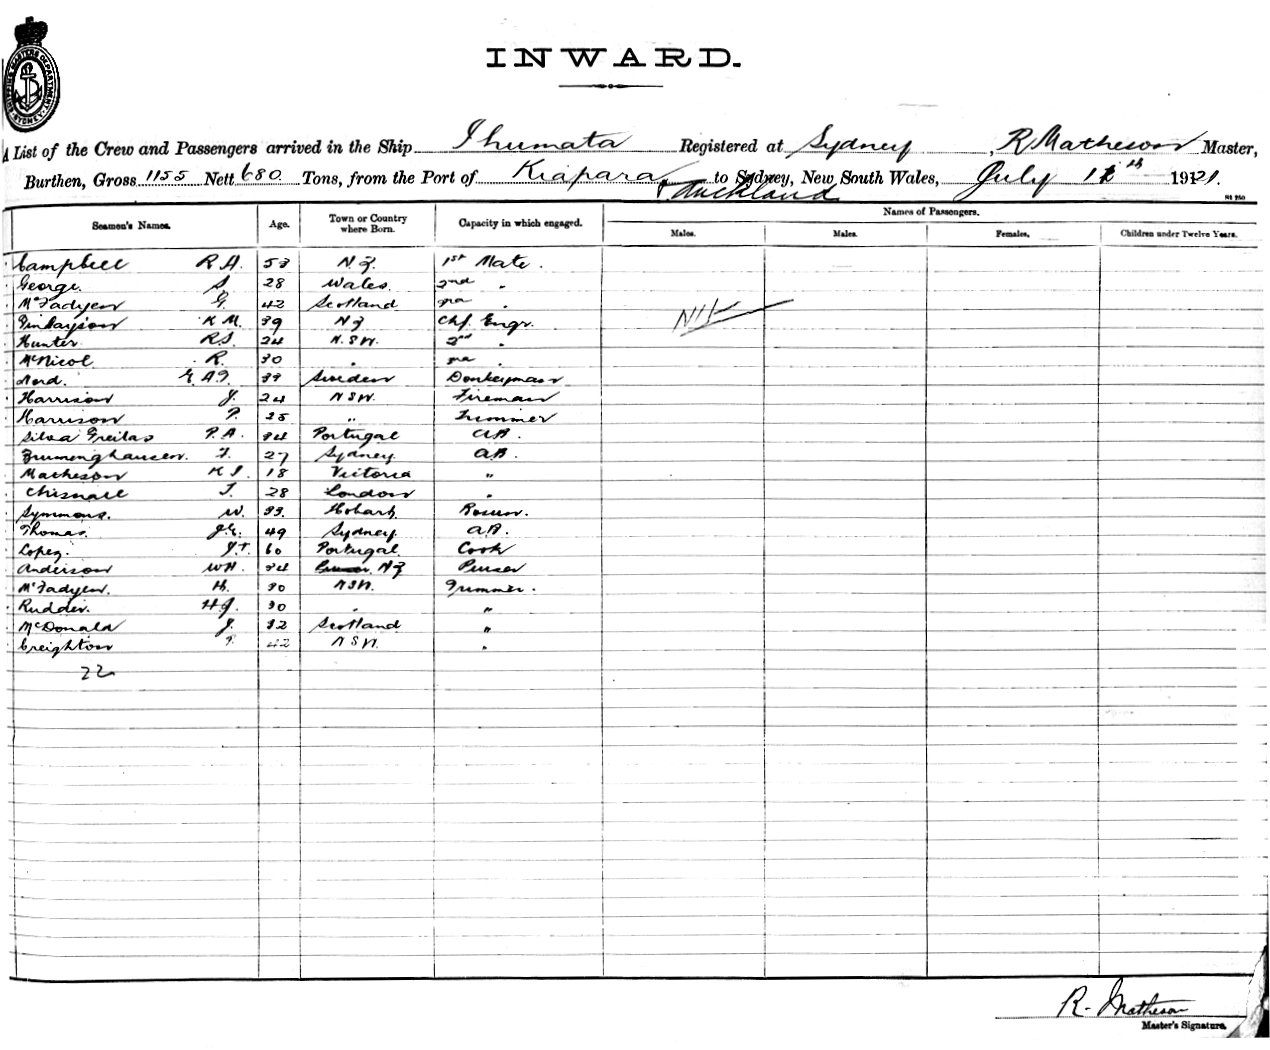 SHIPPING MASTERS DEPARTMENT SYDNEY
INWARD.
A List of the Crew and Passengers arrived in the Ship Ihumata Registered at Sydney, R Matheson Master,
Burthen, Gross 1155 Nett 680 Tons, from the Port of Kiapara & Auckland to Sydney, New South Wales, July th 1921.
Seamen's Names. Age. Town or Country where Born. Capacity in which engaged. Names of Passengers.
Males. Males. Females. Children under Twelve Years.
Campbell R A. 53 N.Z. 1st Mate.
George. S 28 Wales. 2nd "
McFadyen G. 42 Scotland 3rd "
Finlayson K M. 39 NZ Chf. Engr. Nil
Hunter R.S. 24 N.S.W. 2nd "
McNicol R. 30 " 3rd "
Nord. 39 Sweden Donkeyman
Harrison J. 24 NSW. Fireman
Harrison P. 25 " Trimmer
Silva Freitas P.A. 34 Portugal AB.
Brumminghausen. F. 27 Sydney AB.
Matheson K S. 18 Victoria "
Chisnall T. 28 London "
Symmons. W. 33. Hobart Bosun.
Thomas. J.E. 49 Sydney. A.B.
Lopez. J.T. 60 Portugal Cook
Anderson WH. 34 NZ Purser
McFadyen. H. 30 NSW. Trimmer.
Rudder. H.J. 30 " "
McDonald J. 32 Scotland "
Creighton T. 42 NSW. "
22
R. Matheson
Master's Signature.